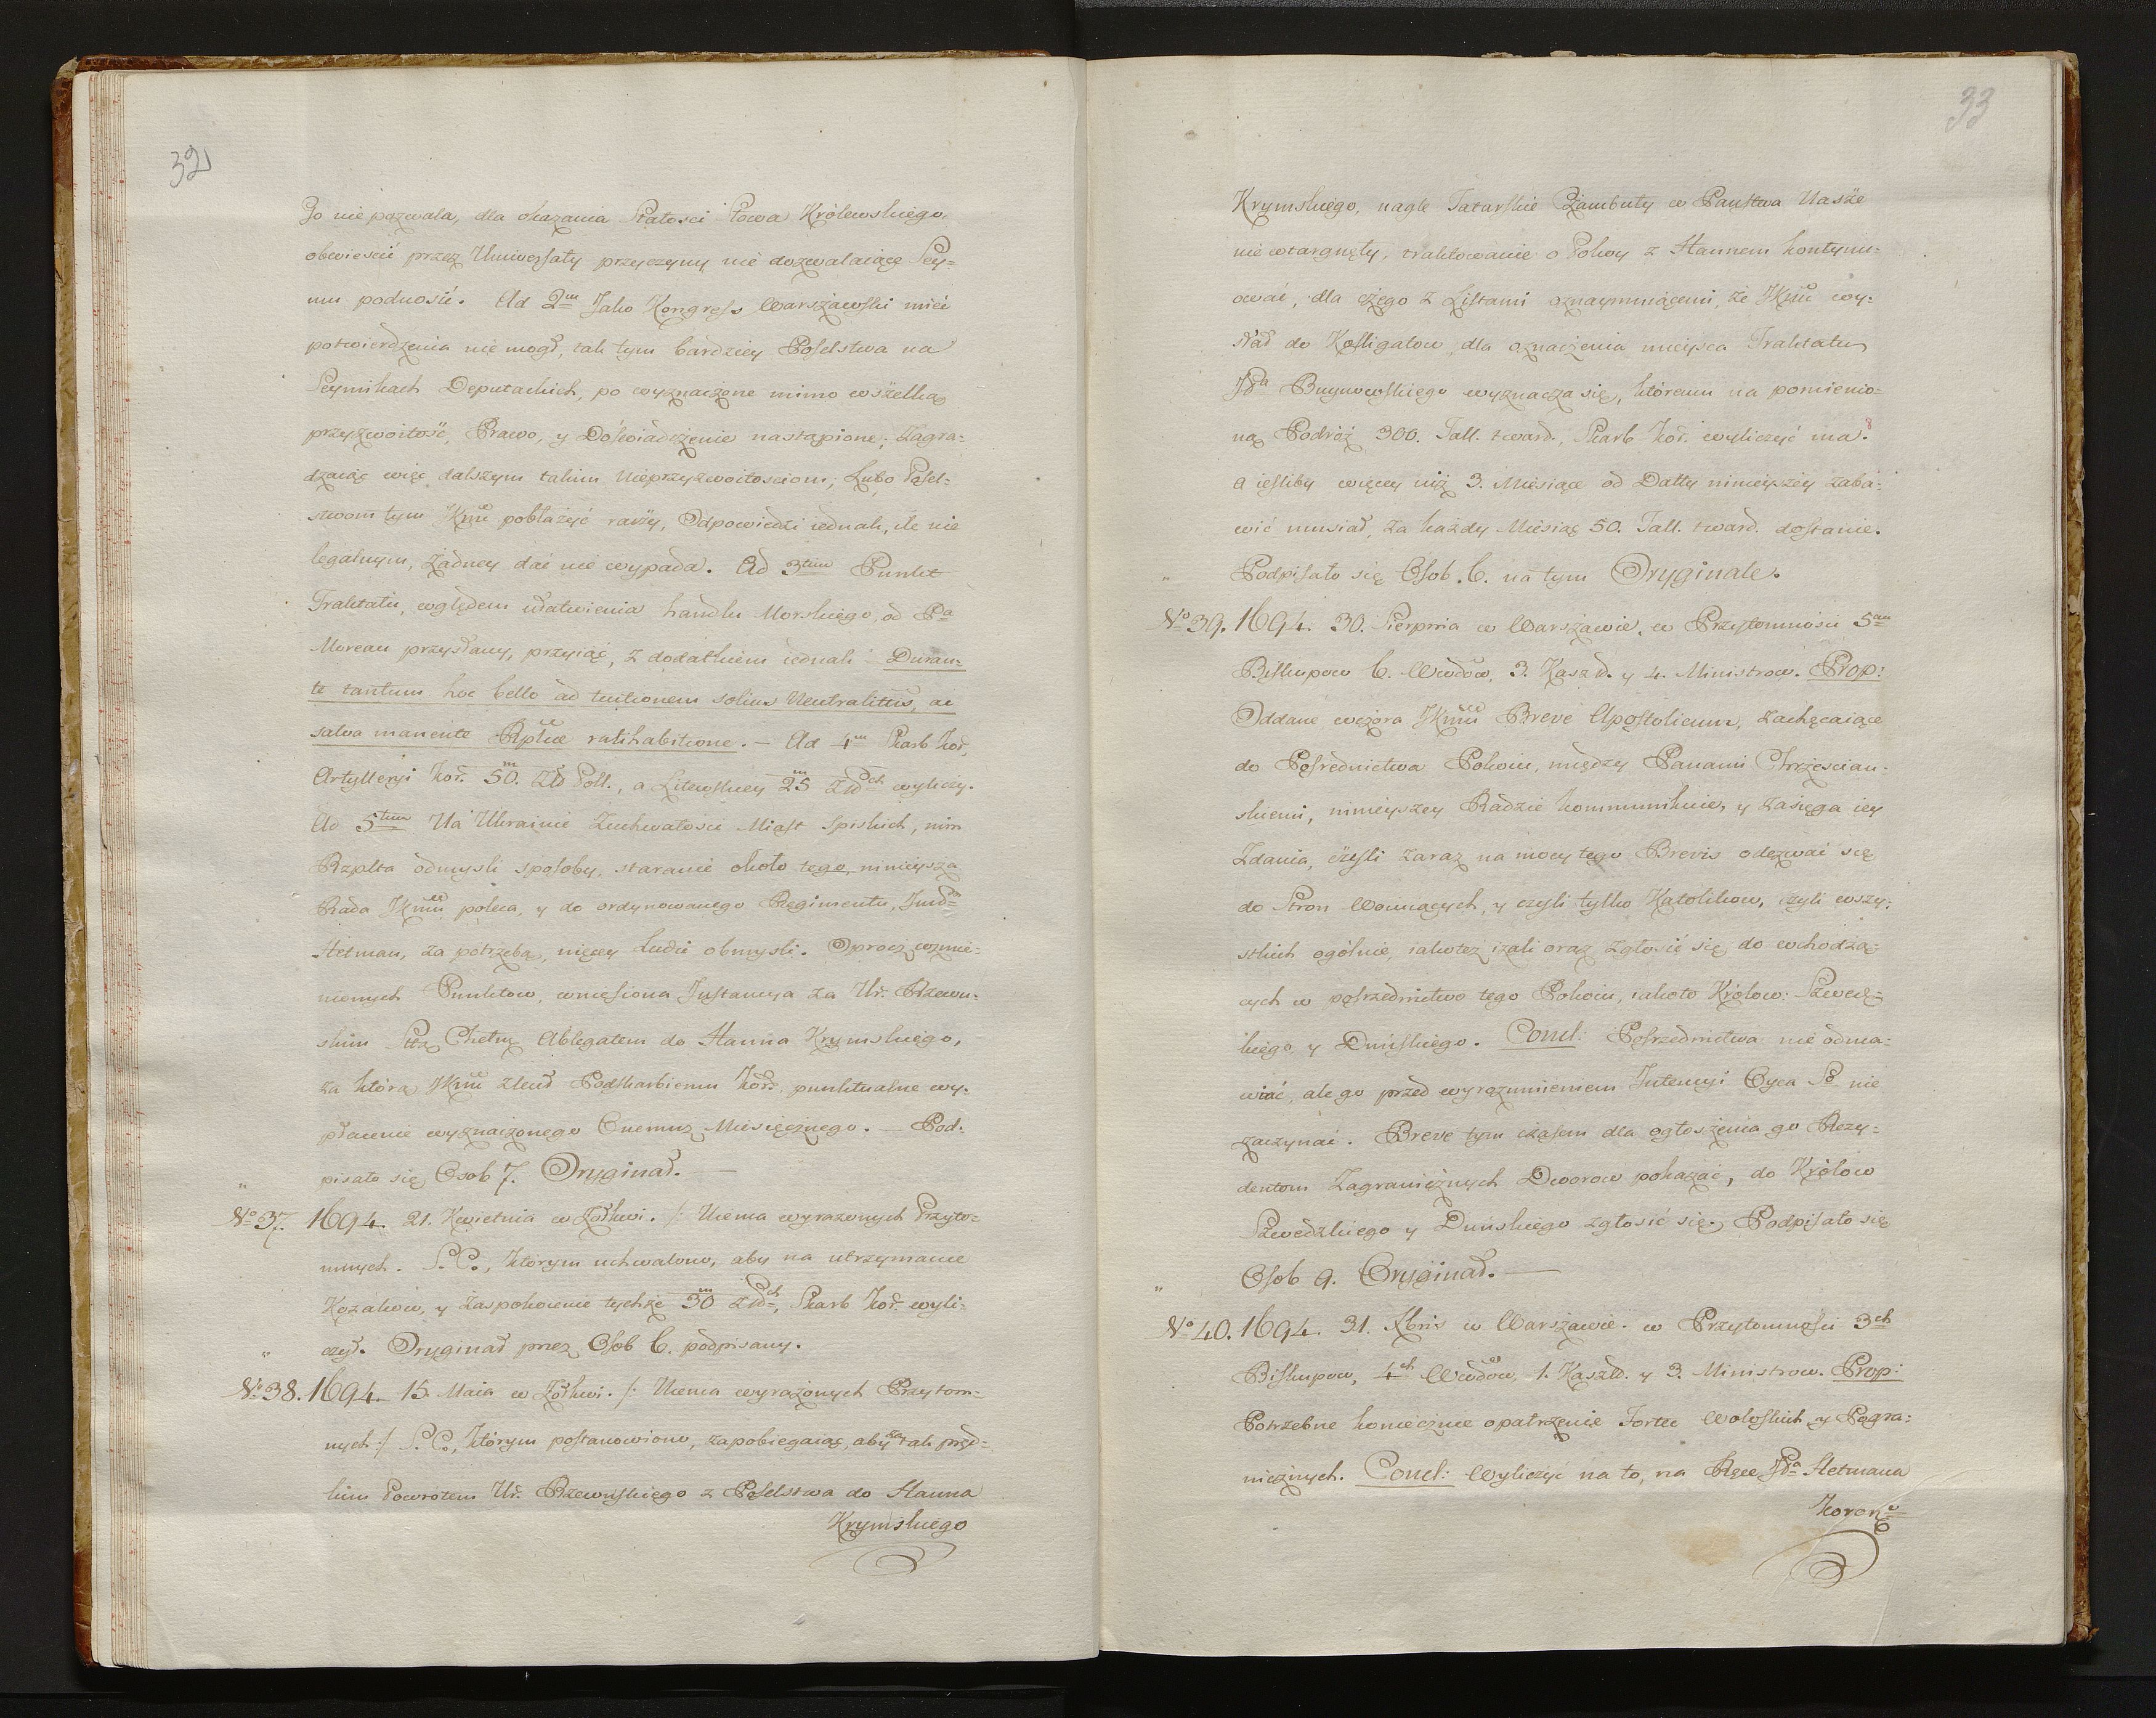 32
Go nie pozwala, dla okazania Stałosci Słowa Królewskiego,
obwiescić przez Uniwersały przyczyny nie dozwalaiące Sey=
mu podnosić. Ad 2m Jako Kongress Warszawski mieć
potwierdzenia nie mogł, tak tym bardziey Poselstwa na
Seymikach Deputackich, po wyznaczone mimo wszelką
przyzwoitość, Prawo, y Doświadczenie nastąpione; zagra=
dzaiąc więc dalszym takim Nieprzyzwoitosciom, Lubo Posel=
stwom tym JKMć pobłażyć raczy, Odpowiedzi iednak, ile nie
legalnym, żadney dać nie wypada. Ad 3tium Punkt
Traktatu, względem ułatwienia handlu Morskiego, od Pa
Moreau przysłany, przyiąć, z dodatkiem iednak Duran=
te tantum hoc bello ad tuitionem solius Neutralitatis, ac
salva manente Rplcæ ratihabitione. – Ad 4m Skarb Kor.
Artylleryi Kor. 50.m Zł Poll., a Litewskiey 25m Złch wyliczy.
Ad 5tum Na Ukrainie Zuchwałości Miast Spiskich, nim
Rzplta obmysli sposoby, staranie około tego, ninieysza
Rada JKMci poleca, y do ordynowanego Regimentu,
Hetman, za potrzebą, więcey ludzi obmysli. Oprocz wzmie=
nionych Punktow, wniesiona Instancya za Ur. Rzewu=
skim Chełm. Ablegatem do Hanna Krymskiego,
za którą JKMć zlecił Podskarbiemu Kor. punktualne wy=
płacenie wyznaczonego Miesięcznego. – Pod=
pisało się Osob 7. Oryginał. —
"
No 37. 1694. 21. Kwietnia w Żołkwi. /: Niema wyrażonych Przyto=
mnych. S.C., którym uchwalono, aby na utrzymanie
Kozaków, y Zaspokoienie tychże 30m Złch, Skarb Kor. wyli=
czył. Oryginał przez Osob 6. podpisany.
"
No 38. 1694. 15. Maia w Żołkwi. /: Niema wyrażonych Przytom=
nych :/ S.C., którym postanowiono, zapobiegaiąc, aby za tak pręd=
kim Powrotem Ur. Rzewuskiego z Poselstwa do Hanna
Krymskiego
33
Krymskiego, nagle Tatarskie Czambuły w Państwa Nasze
nie wtargnęły, traktowanie o Pokoy z Hannem kontynu=
ować, dla czego z Listami oznaymuiącemi, że JKMć wy=
słał do Kolligatow, dla oznaczenia mieysca Traktatu,
JPa Buynowskiego wyznacza się, któremu na pomienio=
ną Podróż 300. Tall. tward., Skarb Kor. wyliczyć ma.
a iesliby więcey niż 3. Miesiące od Datty ninieyszey zaba=
wić musiał, za każdy Miesiąc 50. Tall. tward. dostanie.
Podpisało się Osob. 6. na tym Oryginale.
"
No 39. 1694. 30. Sierpnia w Warszawie, w Przytomności 5ciu
Biskupow 6. Wwdow, 3. Kaszłł. y 4. Ministrow. Prop:
Oddane wczora JKMci Breve Apostolicum, zachęcaiące
do Pośrednictwa Pokoiu, między Panami Chrześcian=
skiemi, ninieyszey Radzie kommunikuie, y zasięga iey
Zdania, czyli zaraz na mocy tego Brevis odezwać się
do Stron Woiuiących, y czyli tylko Katolikow, czyli wszy=
stkich ogólnie, iako też izali oraz zgłosić się do wchodzą=
cych w pośrzednictwo tego Pokoiu, iakoto Królow: Szwedz=
kiego, y Duńskiego. Concl: Pośrzednictwa nie odma=
wiać, ale go przed wyrozumieniem Intencyi Oyca So nie
zaczynać. Breve tym czasem dla ogłoszenia go Rezy=
dentom Zagranicznych Dworow pokazać, do Królow
Szwedzkiego y Duńskiego zgłosić się. Podpisało się
Osob 9. Oryginał. —
"
No 40. 1694. 31. Xbris w Warszawie. w Przytomności 3ch
Biskupow, 4ch Wwdow, 1. Kaszłł. y 3. Ministrow. Prop:
Potrzebne koniecznie opatrzenie Fortec Wołoskich y Pogra=
nicznych. Concl: Wyliczyć na to, na Ręce JPa Hetmana
Koronego